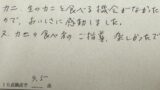 カニ、生のカニを食べる機会がなかった
ので、おいしさに感動しました。
又、カニの食べ方のご指導、楽しかったで
9.50